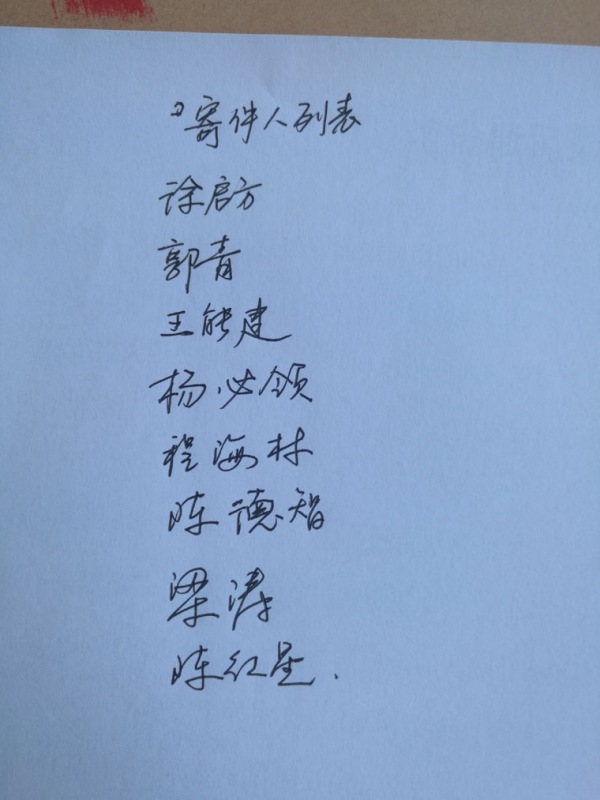 寄件人列表
徐启方
郭青
王能建
杨必领
程海林
陈德智
梁涛
陈红星.